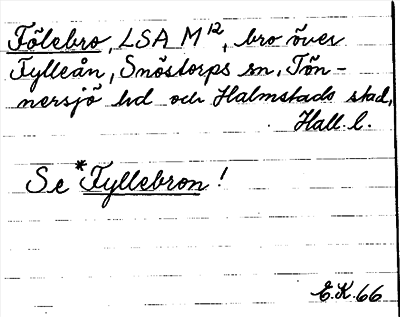 Fölebro, LSA M¹², bro över
Fylleån, Snöstorps sn, Tön-
nersjö hd och Halmstads stad,
Hall. l.
Se *Fyllebron!
E.K. 66